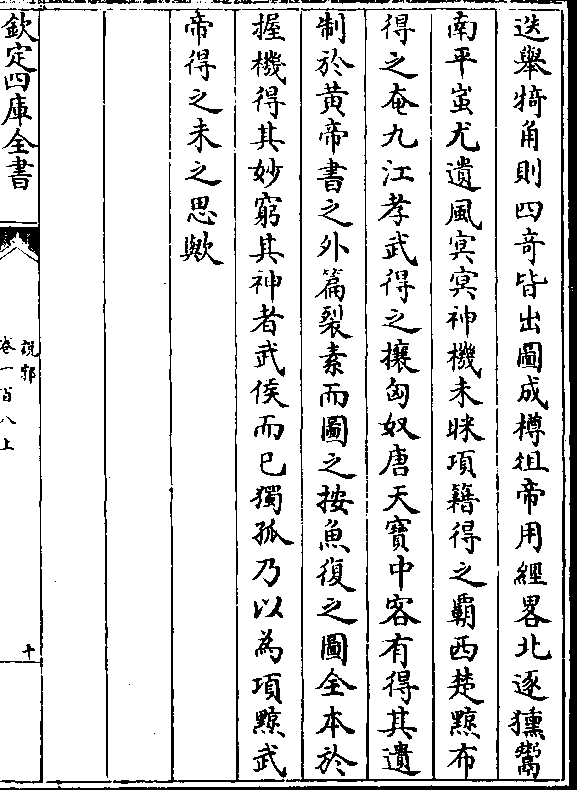 迭舉犄角則四奇皆出圖成樽俎帝用經畧北逐獯鬻
南平蚩尤遺風㝠㝠神機未昧項籍得之霸西楚黥布
得之奄九江孝武得之攘匈奴唐天寶中客有得其遺
制於黄帝書之外篇裂素而圖之按魚復之圖全本於
握機得其妙窮其神者武侯而已獨孤乃以為項黥武
帝得之未之思歟
欽定四庫全書
説郛
卷一百八上
十